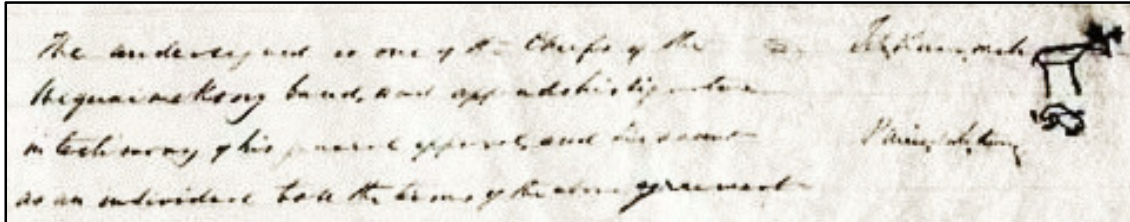 The undersigned is one of the Chiefs of the
band, and appends his signature
in testimony of his general approval, and his assent
as an individual to all the terms of the above agreement